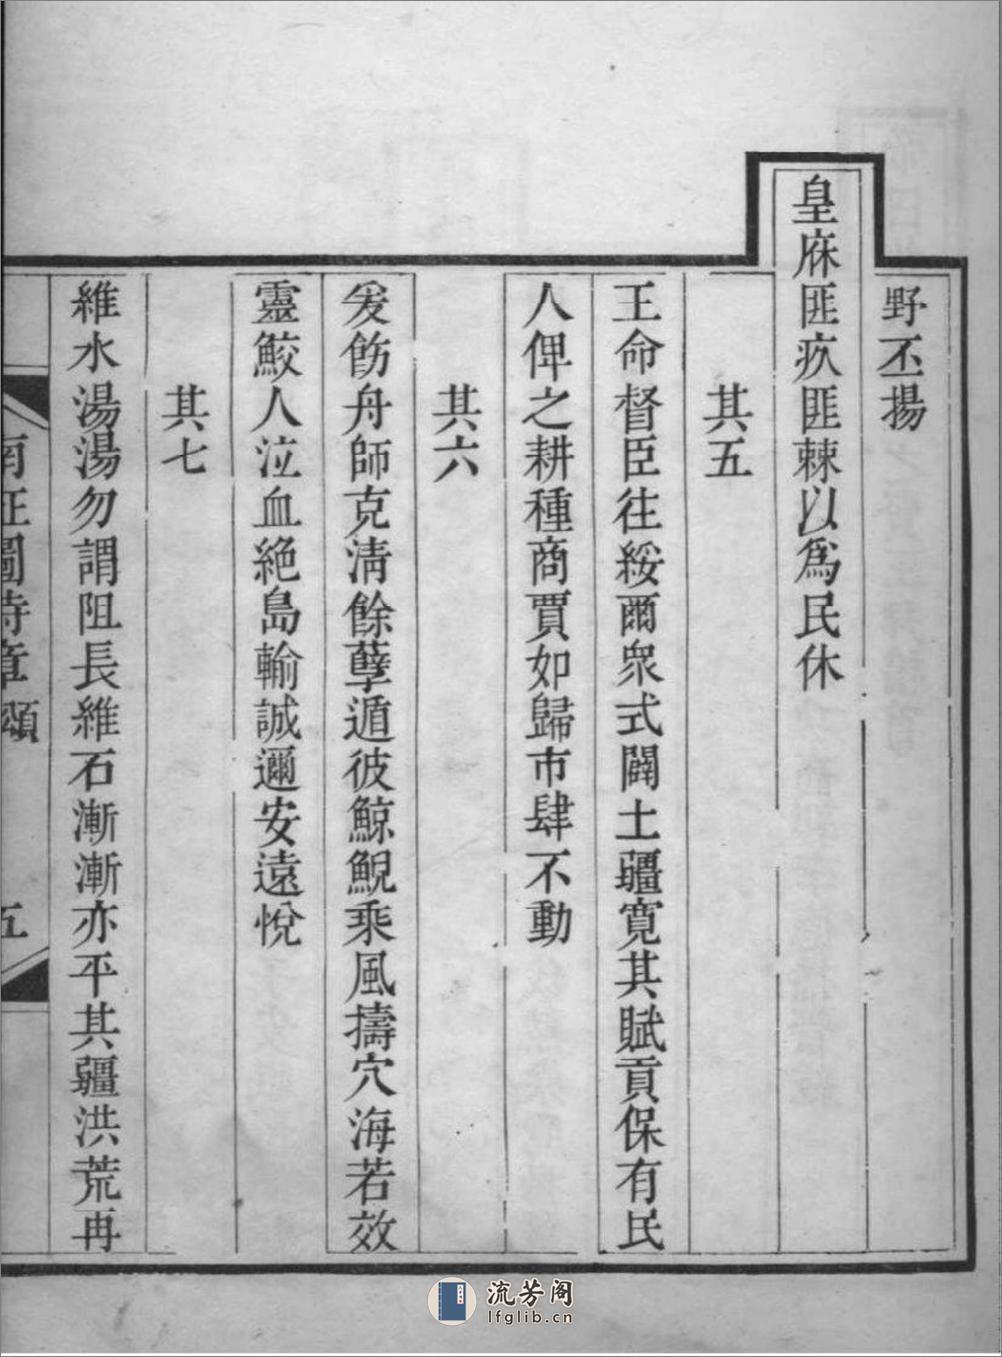 野丕揚
皇庥匪疚匪棘以爲民休
其五
王命督臣往綏爾衆式闢土疆寬其賦貢保有民
人俾之耕種商賈如歸市肆不動
其六
爰飭舟師克淸餘孽遁彼鯨鯢乘風擣穴海若效
靈鮫人泣血絶島輸誠邇安遠悅
其七
維水湯湯勿謂阻長維石漸漸亦平其疆洪荒再
南征圖詩章頌
五
流芳阁
lfglib.cn